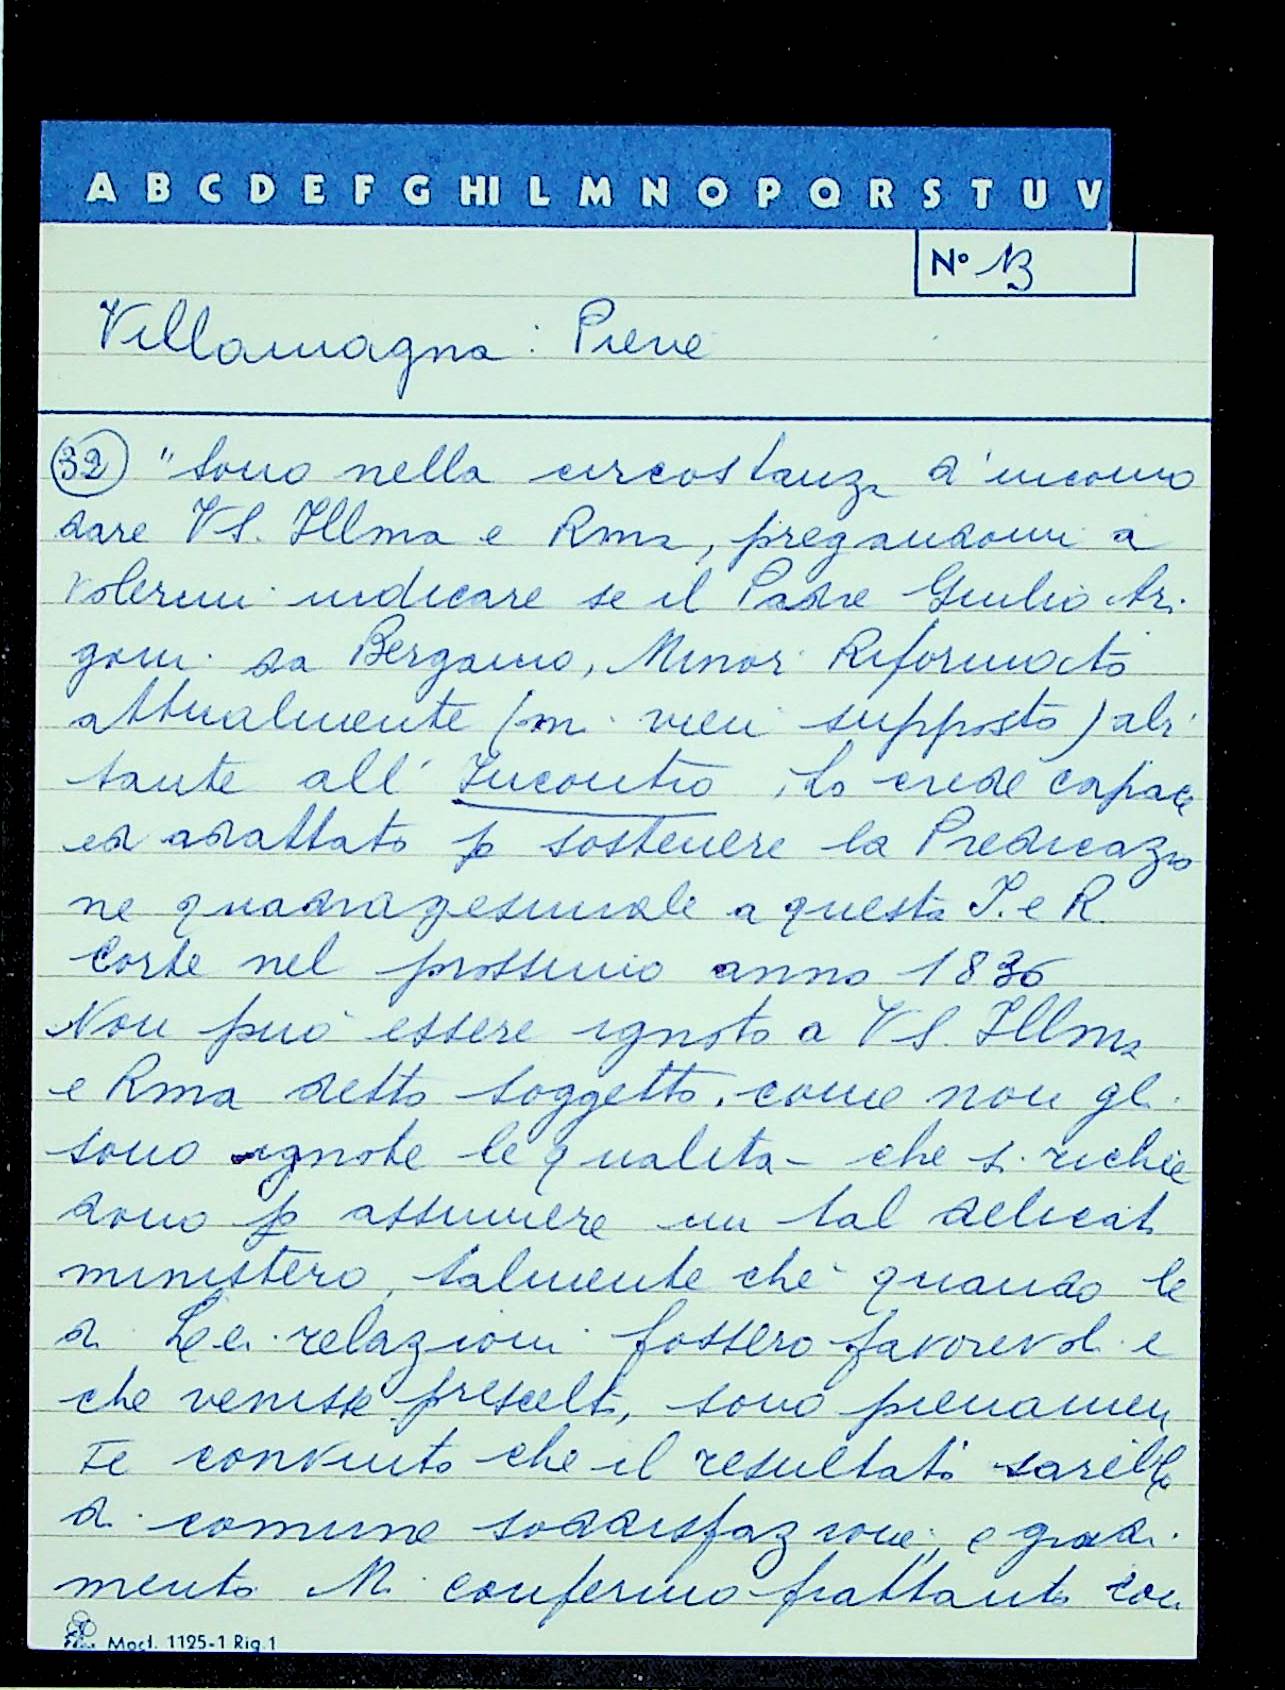 A B C D E F G HI L M N O P Q R S T U V
N° 13
Villamagna: Pieve
32 "Sono nella circostanza d'incomo
dare VS. Illma e Rma, pregandomi a
volermi indicare se il Padre Giulio Ar.
goni da Bergamo, Minor Riformato
attualmente (mi vien supposto) abi
tante all'Incontro, Lo crede capace
ed adattato p sostenere la Predicazio
ne quadragesimale a questa I. e R.
Corte nel prossimo anno 1836
Non può essere ignoto a VS. Illma
e Rma detto soggetto, come non gli
sono ignote le qualità che si richie
dono p assumere un tal delicato
ministero, talmente che quando le
di Lei relazioni fossero favorevoli e
che venisse prescelto, sono pienamen
te convinto che il resultato sarebbe
di comune soddisfazione, e gradi
mento Mi confermo frattanto con
Mod. 1125-1 Rig.1